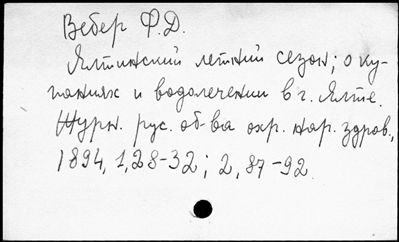 Вебер Ф.Д.
Ялтинский летний сезон; о ку-
паниях и водолечении в г. Ялте.
Журн. рус. об-ва охр. нар. здров.,
1894, 1, 28-32; 2, 87-92.